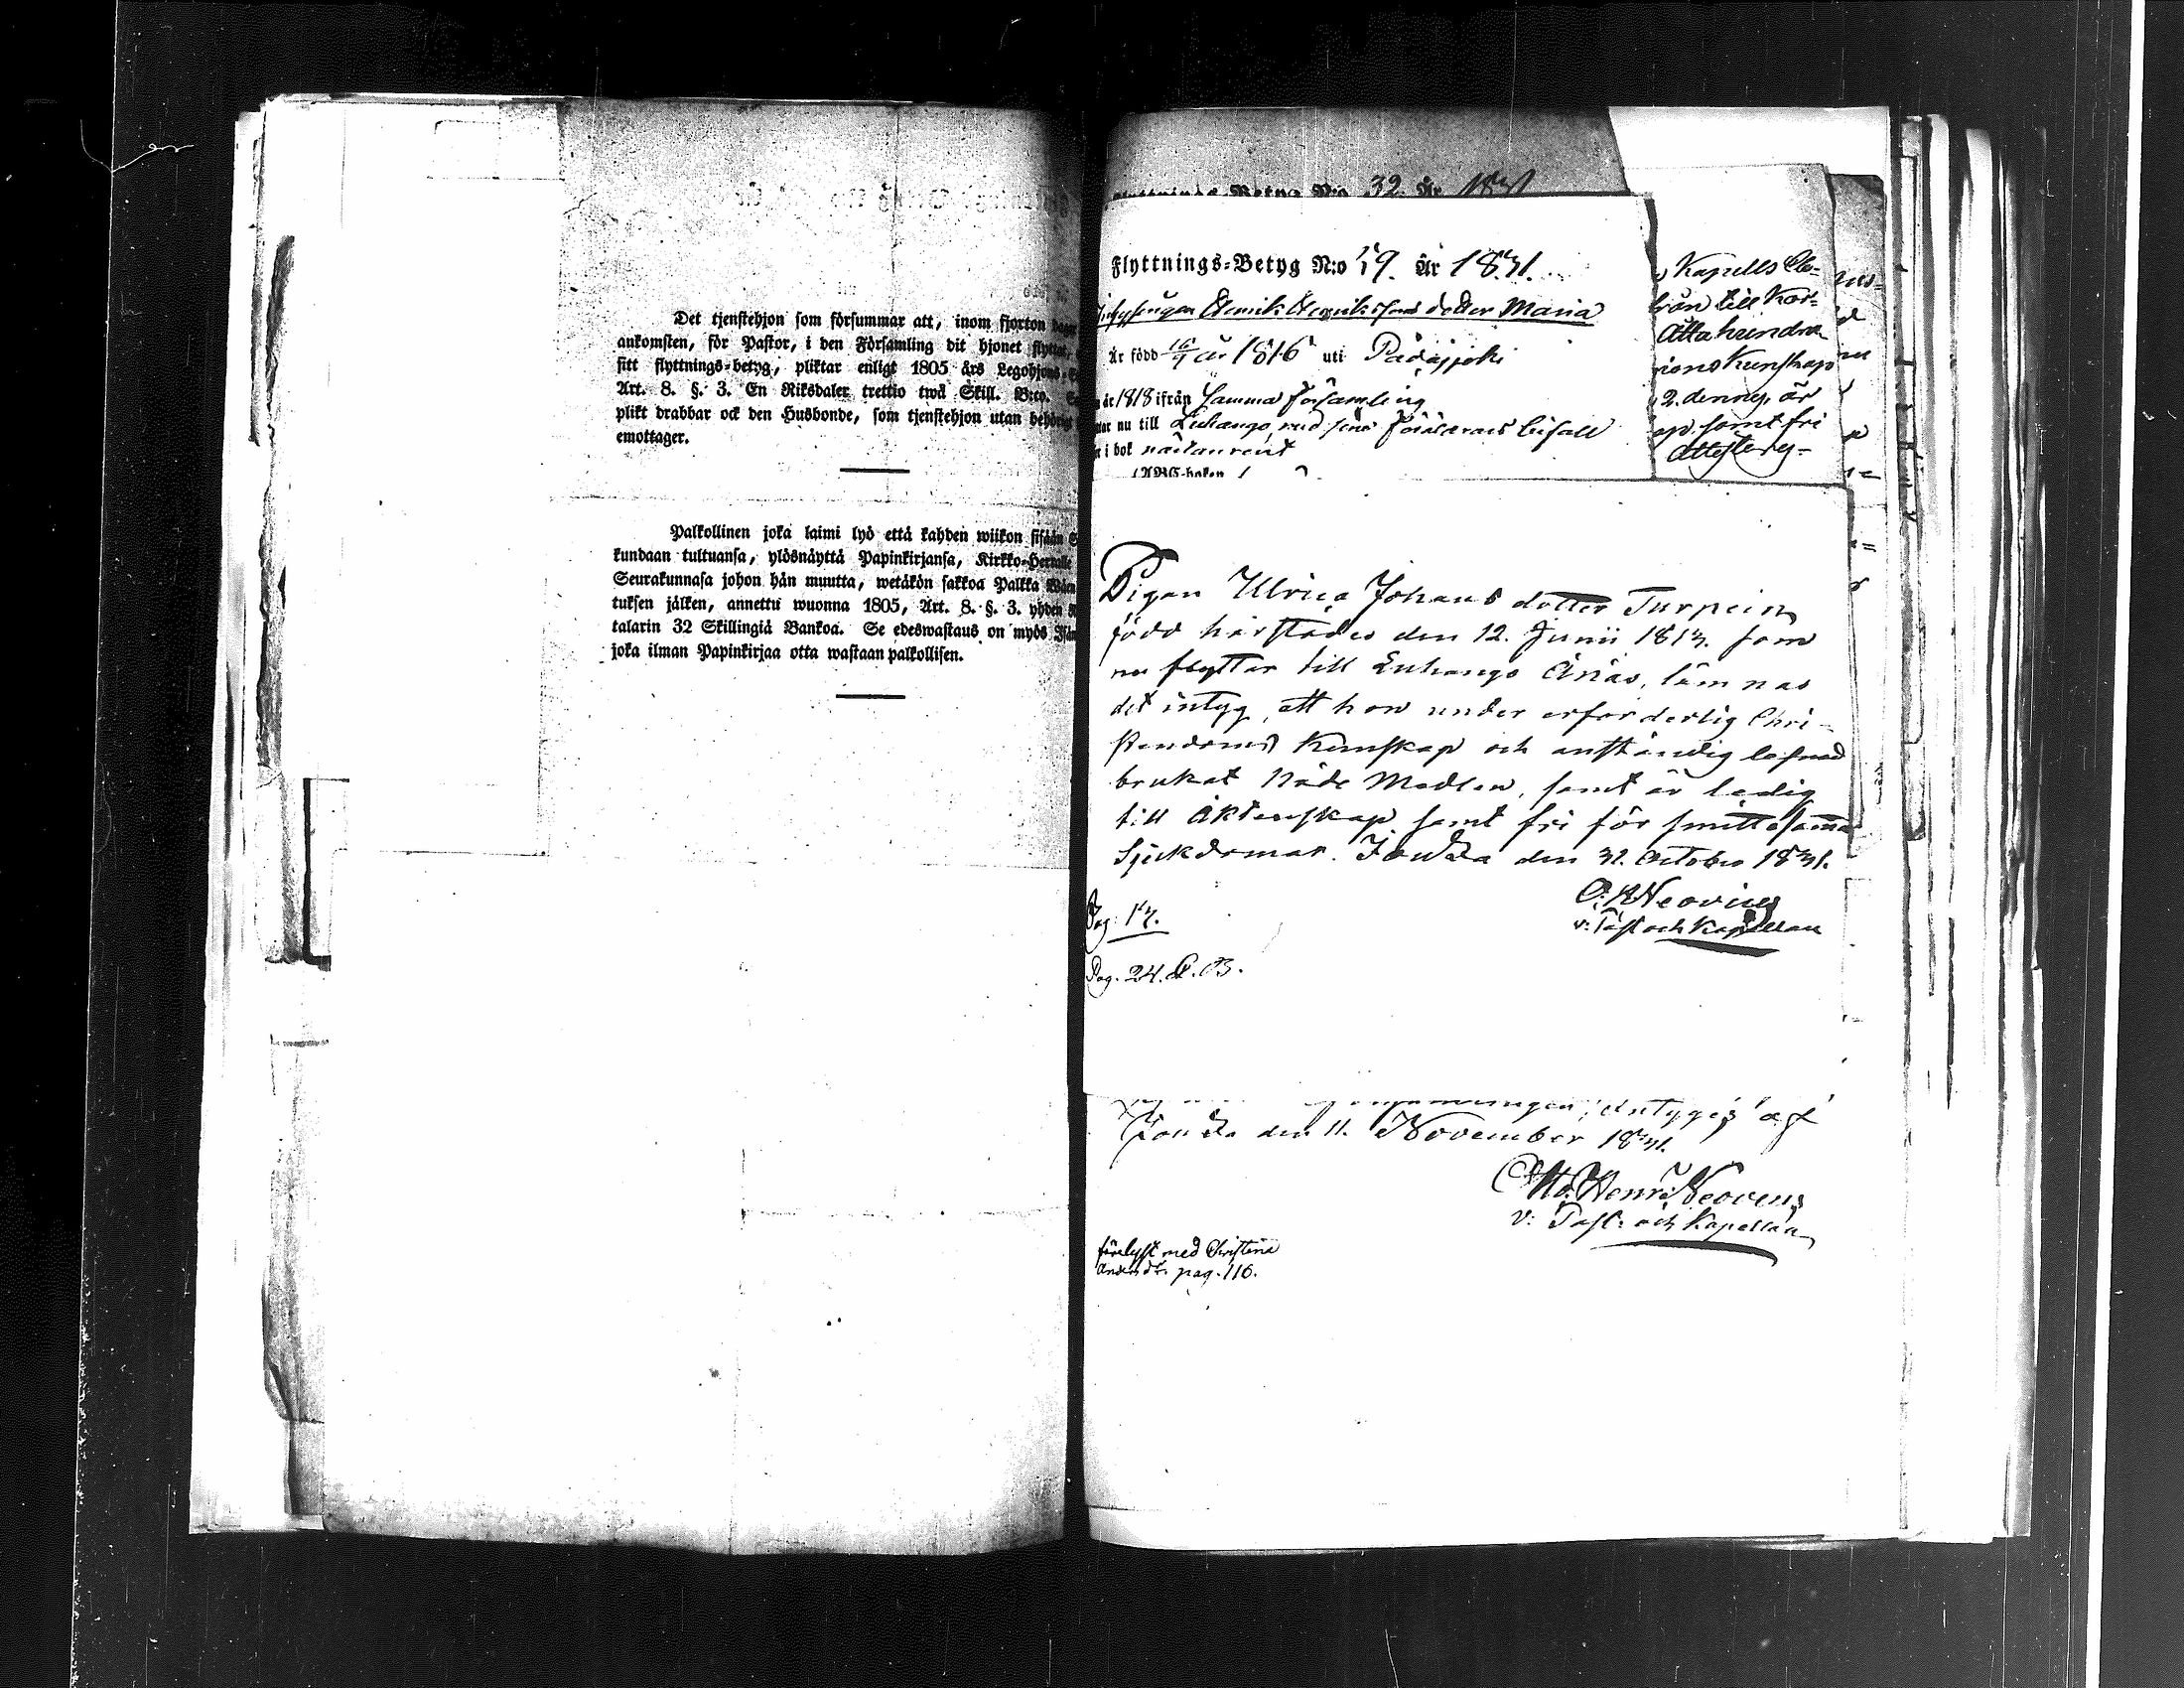 Det tjenstehjon som försummar att, inom fjorton
ankomsten, för Pastor, i den Församling dit hjonet flyttat,
sitt flyttnings-betyg, pliktar enligt 1805 års Legohjons-
Art. 8. §. 3. En Riksdaler trettio twå Skill. B:co.
plikt drabbar ock den Husbonde, som tjenstehjon utan behörig
emottager.
Palkollinen joka laimi lyö että kahden wiikon sisään
kundaan tultuansa, ylösnäyttä Papinkirjansa, Kirkko-Herralle
Seurakunnasa johon hän muutta, wetäkön sakkoa Palkka
tuksen jälken, annettu wuonna 1805, Art. 8. §. 3. yhden
talarin 32 Skillingiä Bankoa. Se edeswastaus on myös
joka ilman Papinkirjaa otta wastaan palkollisen.
Betyg N:o 32. År 1831
Flyttnings-Betyg N:o 19. År 1831.
Henrik Henriksons dotter Maria
är född 16/9 år 1816 uti Padasjoki
år 1818 ifrån samma församling
nu till Luhango, med sina föräldrars bifall
i bok nästan rent
ABC-boken
Kapells
från till Kor-
Åtta hundra
ions Kunskap
2. denna, är
samt fri
Pigan Ulrica Johans dotter Turpein
född härstädes den 12. Junii 1813. som
nu flyttar till Luhango Änäs, lämnas
det intyg, att hon under erforderlig Chri-
stendoms Kunskap och anständig lefnad
brukat Nåde Medlen, samt är ledig
till Äktenskap samt fri för smittosamma
Sjukdomar. Joutza den 31. October 1831.
O. H. Neovius
v: Past och Kapellan
Pag: 13.
Pag. 24. L. B.
intygas af
Joutza den 11. November 1831.
Otto Henr: Neovius
v: Past: och Kapellan
förelyst med Christina
Anders dr. pag. 116.